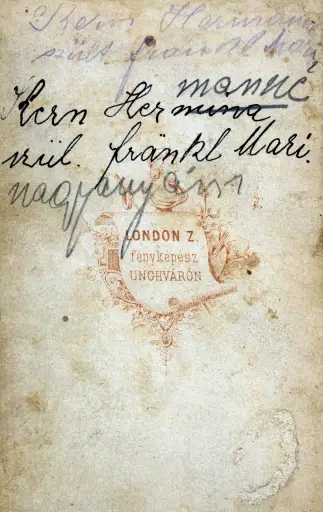 Kern Hermanné
szült fränkl Mari
manné
Kern Hermina
szül. fränkl Mari.
nagyanyám
LONDON Z.
fényképész
UNGHVÁRÓN